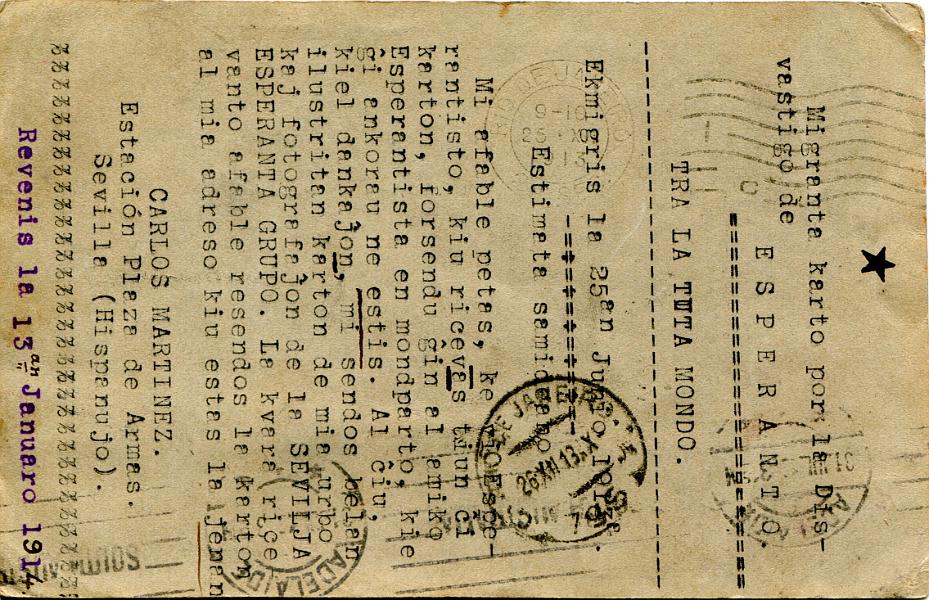 Migranta karto por la Dis-
vastigo de
E S P E R A N T O.
TRA LA TUTA MONDO.
Ekmigris la 25an
Estimata samideano
Mi afable petas, ke Espe-
rantisto, kiu ricevas tiun ĉi
karton, forsendu ĝin al amiko
Esperantista en mondparto, kie
ĝi ankorau ne estis. Al ĉiu,
kiel dankaĵon, mi sendos belan
ilustritan karton de mia urbo
kaj fotografaĵon de la SEVILJA
ESPERANTA GRUPO. La kvara riĉe
vanto afable resendos la karton
al mia adreso kiu estas la jenan
CARLOS MARTINEZ.
Estación Plaza de Armas.
Sevilla (Hispanujo).
zzzzzzzzzzzzzzzzzzzzzzzzzzzzzz
Revenis la 13an Januaro 1914
DE JANEIRO
26 XII 13
ADELAIDE